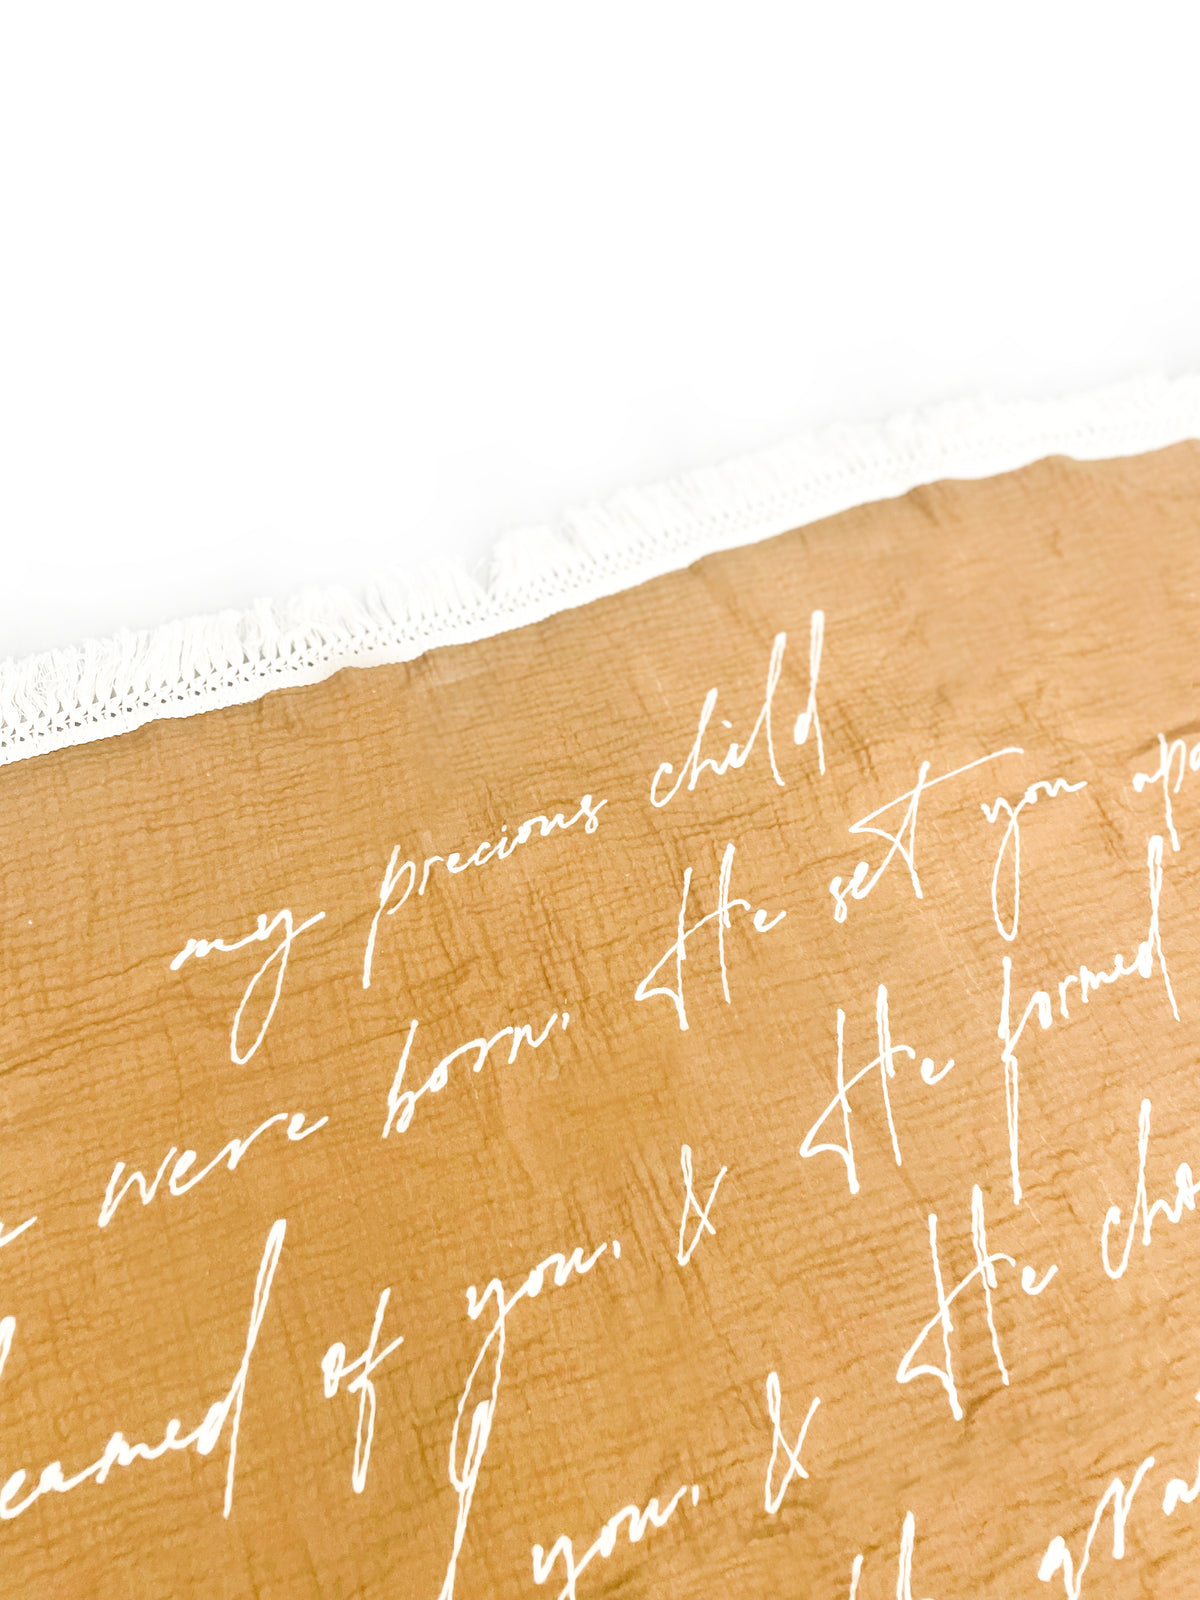 my precious child
were born, He set you apa
eamed of you, & He formed
you, & He cho